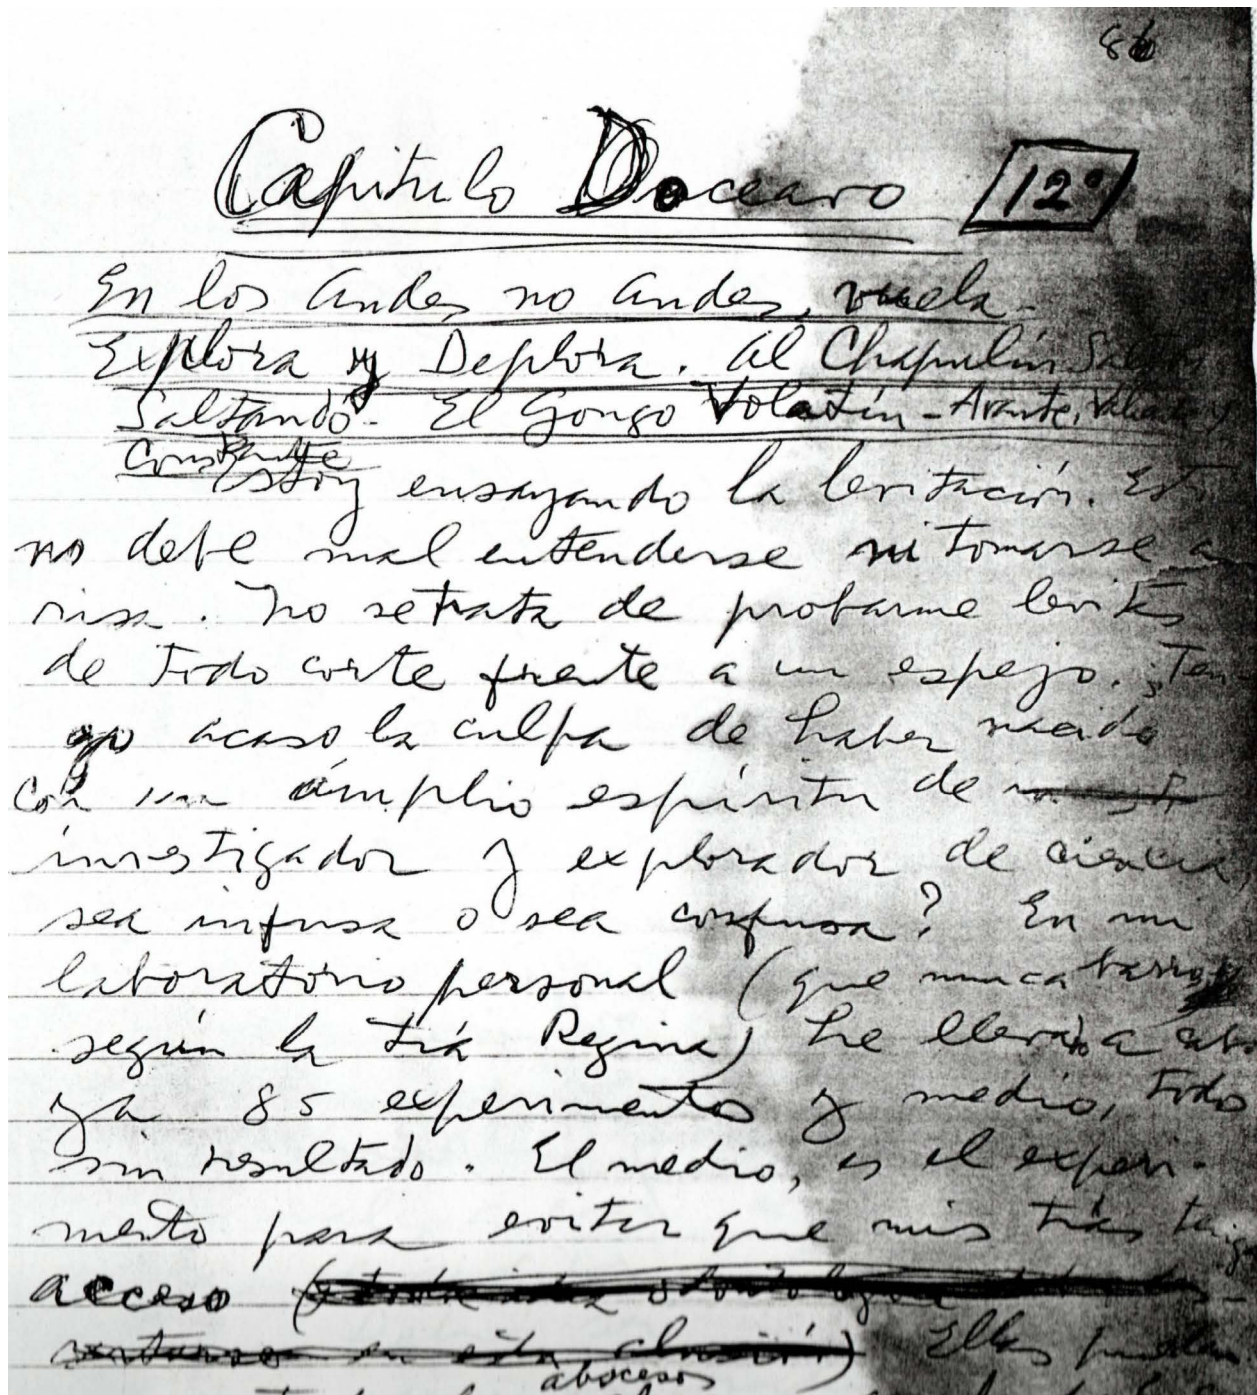 86
Capitulo Doceavo 12º
En los Andes no andes, vuela-
Explora y Deplora. Al Chapulín
Saltando. El Gongo Volatín - Avante, Valiente y
Constante
Estoy ensayando la levitación. Esto
no debe mal entenderse ni tomarse a
risa. No se trata de probarme levitas
de todo corte frente a un espejo. ¿Ten-
go acaso la culpa de haber nacido
con un ámplio espíritu de
investigador y explorador de ciencia,
sea infusa o sea confusa? En mi
laboratório personal (que nunca barro,
según la tía Regina) he llevado a cabo
ya 85 experimentos y medio, todo
sin resultado. El medio, es el experi-
mento para evitar que mis tías tengan
acceso (
en esta alusión) Ellas pueden
abocesos